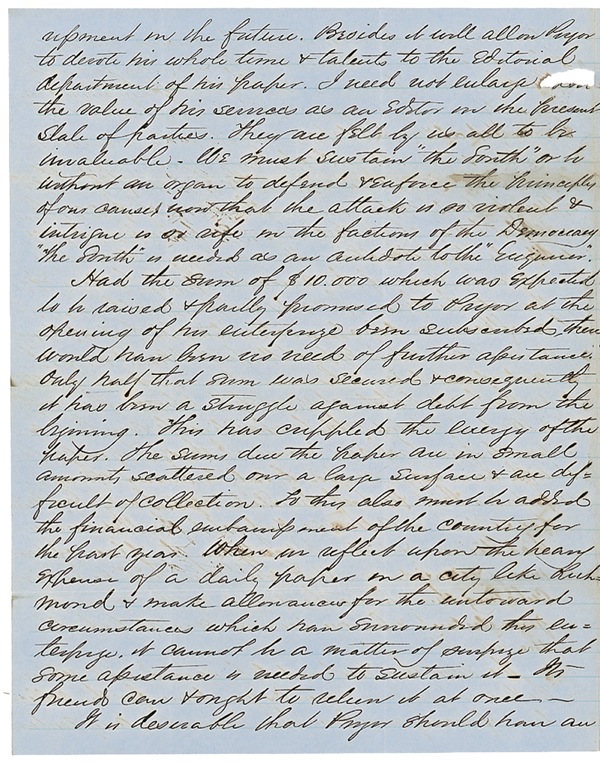 upment in the future. Besides it will allow Pryor
to devote his whole time & talents to the Editorial
department of his paper. I need not enlarge upon
the value of his services as an Editor in the present
State of parties. They are felt by us all to be
invaluable - We must sustain "the South" or be
without an organ to defend & enforce the principles
of our cause; now that the attack is so violent &
intrigue is so rife in the factions of the Democracy
"The South" is needed as an antidote to the "Enquirer"
Had the sum of $10.000 which was expected
to be raised & partly promised to Pryor at the
opening of his enterprize been subscribed there
would have been no need of further assistance.
Only half that sum was secured & consequently
it has been a struggle against debt from the
begining. This has crippled the energy of the
paper. The sums due the paper are in small
amounts scattered over a large surface & are dif=
ficult of collection. To this also must be added
the financial embarrassment of the country for
the past year. When we reflect upon the heavy
expense of a daily paper in a city like Rich=
mond & make allowances for the untoward
circumstances which have surrounded this en=
terprize, it cannot be a matter of surprize that
some assistance is needed to sustain it - Its
friends can & ought to relieve it at once —
It is desirable that Pryor should have an